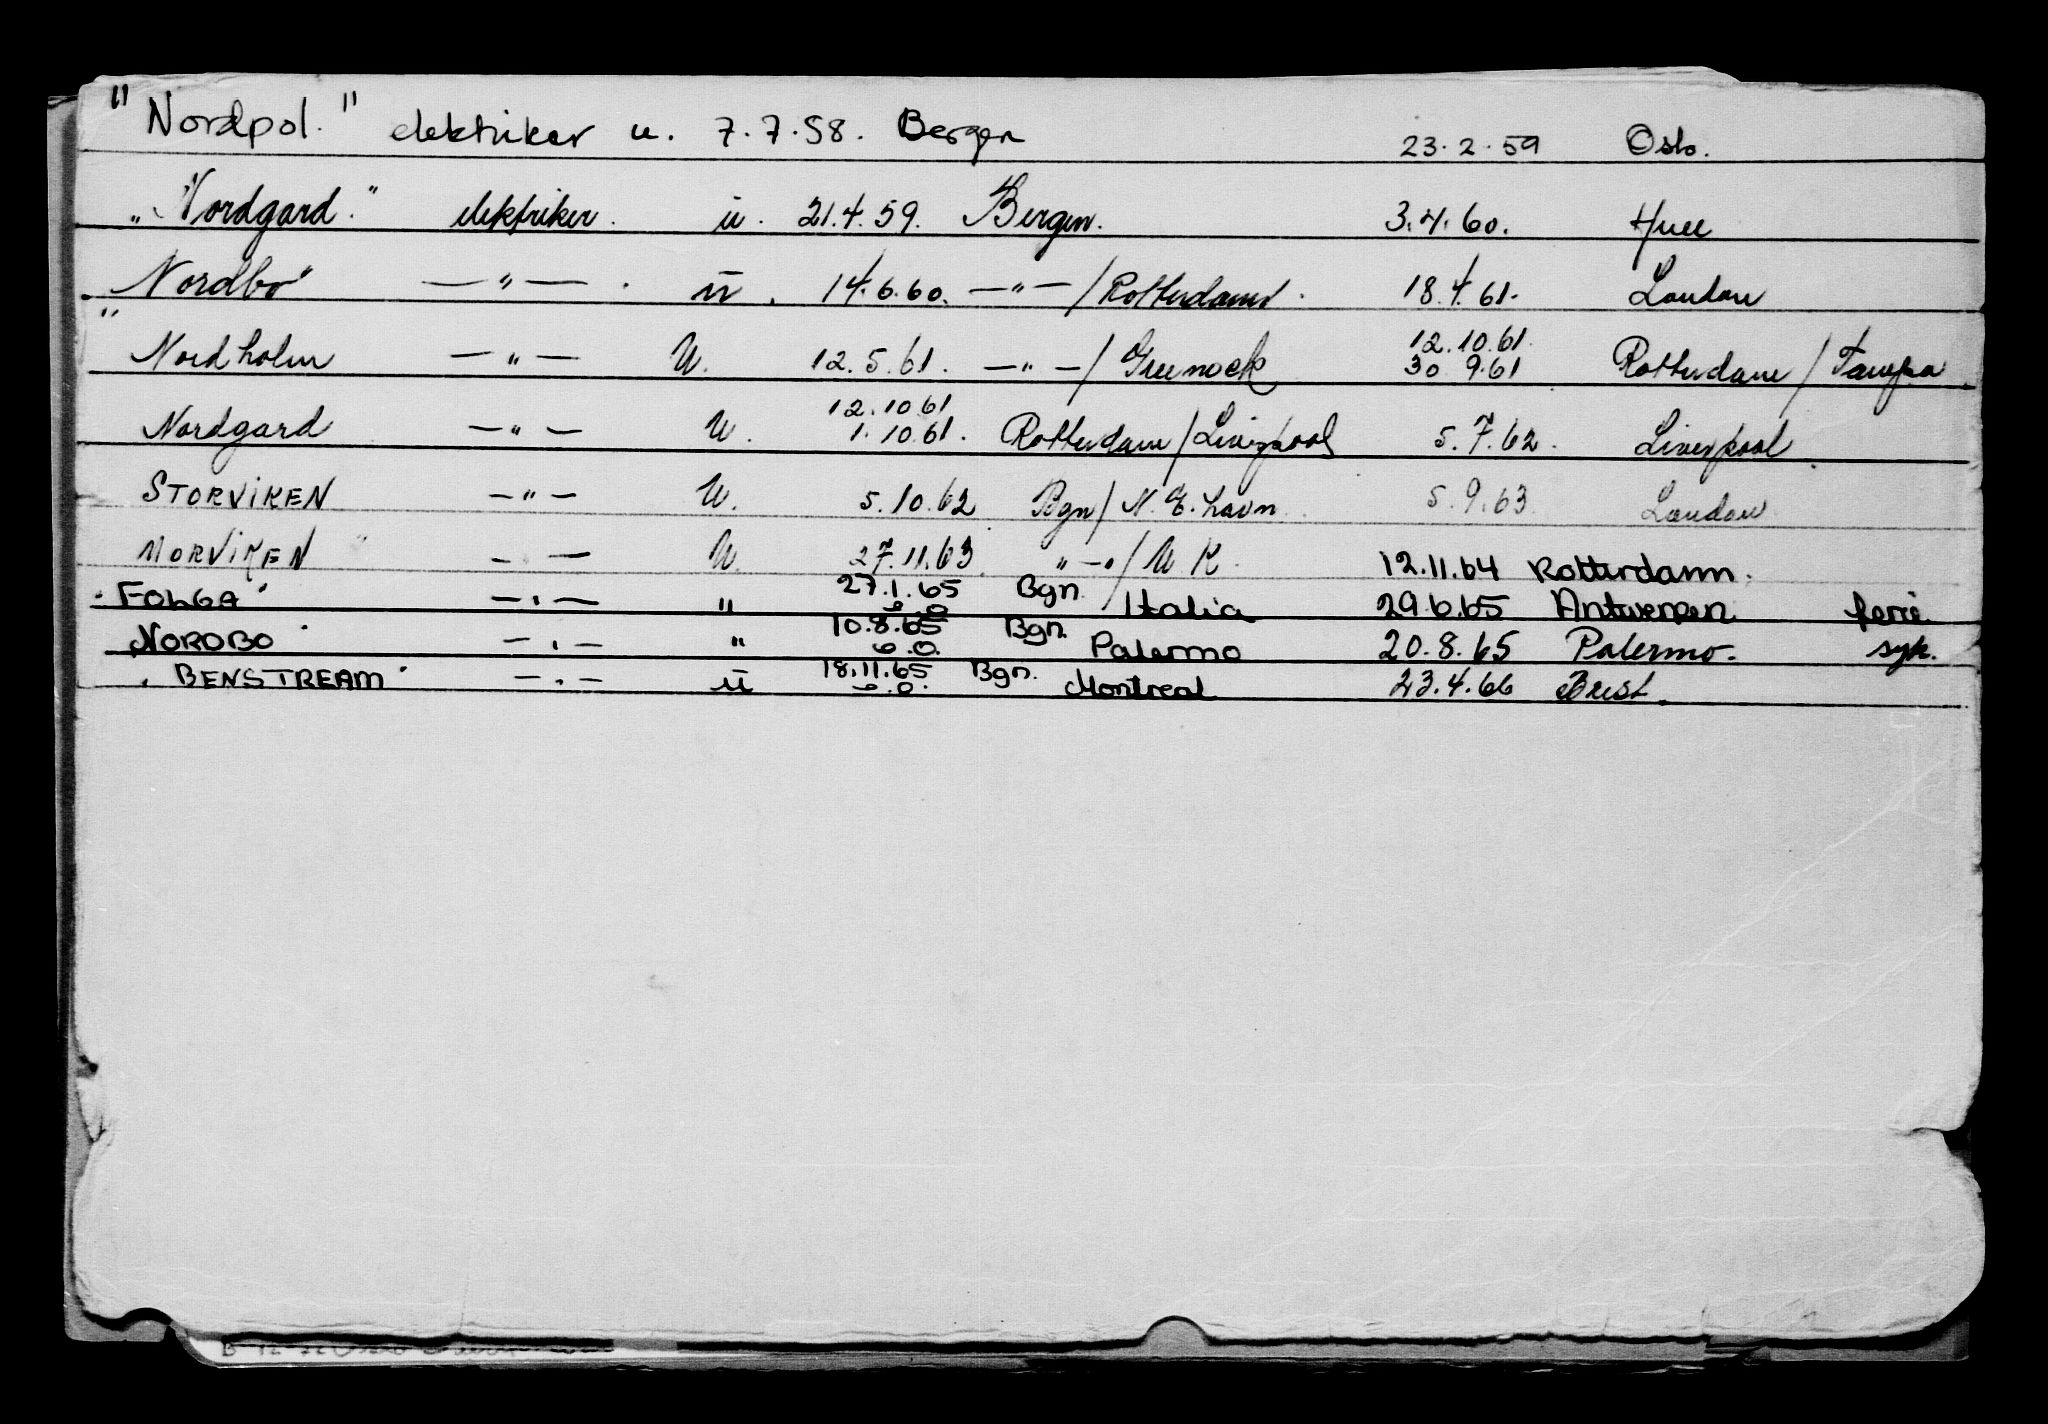 "Nordpol." elektriker u. 7.7.58. Bergen 23.2.59 Oslo.
"Nordgard." elektriker. u. 21.4.59. Bergen. 3.4.60. Hull
Nordbo" —"— . u. 14.6.60. —"—/Rotterdam. 18.4.61. London
" Nordholm —"— U. 12.5.61. —"—/Greenock 12.10.61. 30 9.61 Rotterdam/Tampa
Nordgard —"— U. 12.10.61 1.10.61. Rotterdam/Liverpool 5.7.62. Liverpool.
STORVIKEN —"— U. 5.10.62 Bgn/N.E.havn. 5.9.63 London
MORVIKEN " —.— U. 27.11.63. "-"/U K. 12.11.64 Rotterdam.
"FOLGA" —"— " 27.1.65 Bgn./Italia 29.6.65 Antwerpen ferie
NORDBO —"— " 10.8.65 Bgn. Palermo 20.8.65 Palermo. syk.
"BENSTREAM" —.— u 18.11.65 Bgn. Montreal 23.4.66 Brest.